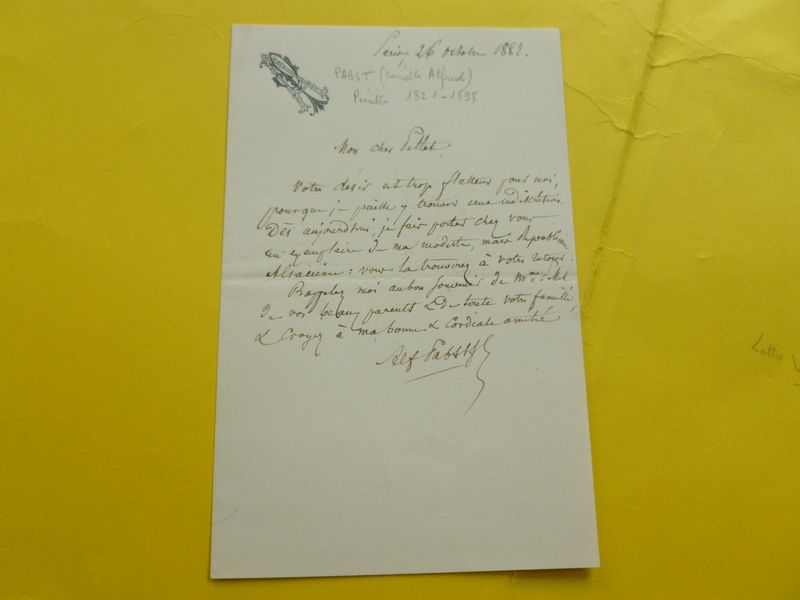 Paris 26 octobre 1882.
PABST (Camille Alfred)
Peintre 1821-1898
Mon cher Pellet,
Votre désir est trop flatteur pour moi,
pour que je puisse y trouver une indiscrétion.
Dès aujourd'hui, je fais porter chez vous
un exemplaire de ma modeste, mais
Alsacienne : vous la trouverez à votre retour.
Rappelez moi au bon souvenir de Mme
de vos beaux parents & de toute votre famille,
& croyez à ma bonne & cordiale amitié
Alf Pabst
Lettre